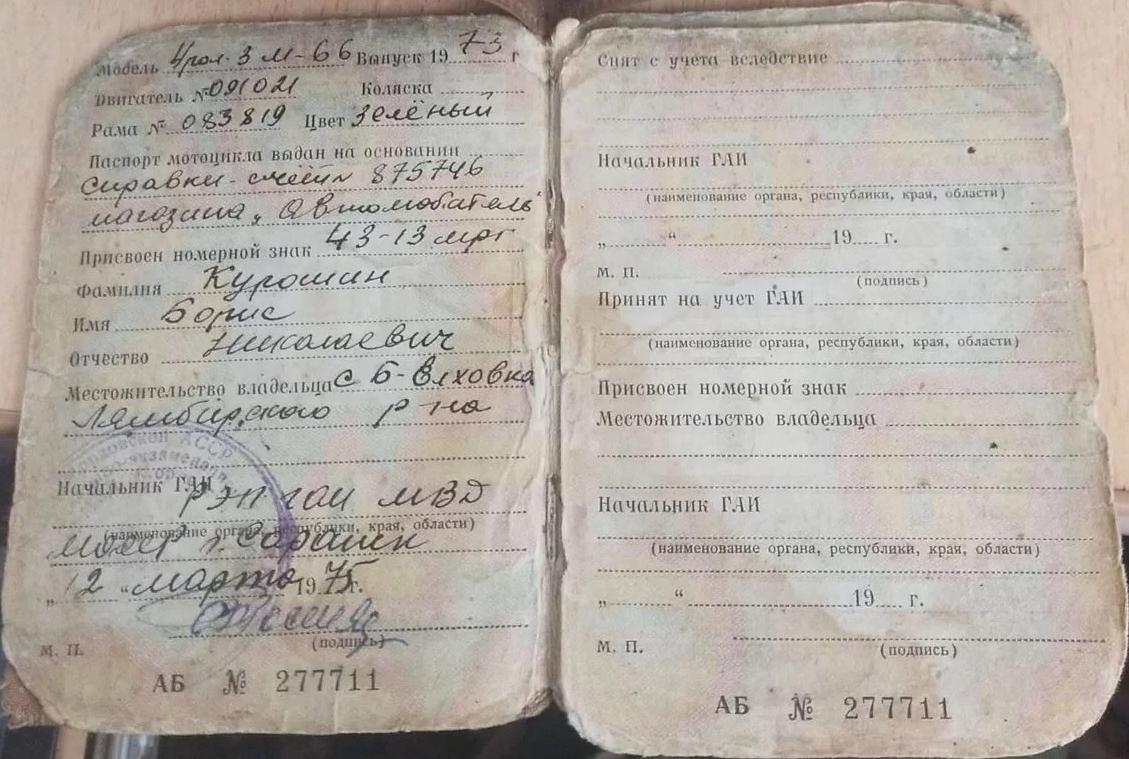 Модель Урал-3 М-66 Выпуск 1973 г
Двигатель № 091021 Коляска
Рама № 083819 Цвет Зелёный
Паспорт мотоцикла выдан на основании
справки-счёт № 875746
магазина „Автолюбитель"
Присвоен номерной знак 43-13 мрг
Фамилия
Имя Борис
Отчество Николаевич
Местожительство владельца с Б-Елховка
Лямбирского р-на
Начальник ГАИ РЭП ГАИ МВД
(наименование органа, республики, края, области)
г. Саранск
„12 “ марта 1975 г.
(подпись)
М. П.
АБ № 277711
Снят с учета вследствие
Начальник ГАИ
(наименование органа, республики, края, области)
„ “ 19 г.
М. П.
(подпись)
Принят на учет ГАИ
(наименование органа, республики, края, области)
Присвоен номерной знак
Местожительство владельца
Начальник ГАИ
(наименование органа, республики, края, области)
„ “ 19 г.
М. П.
(подпись)
АБ № 277711